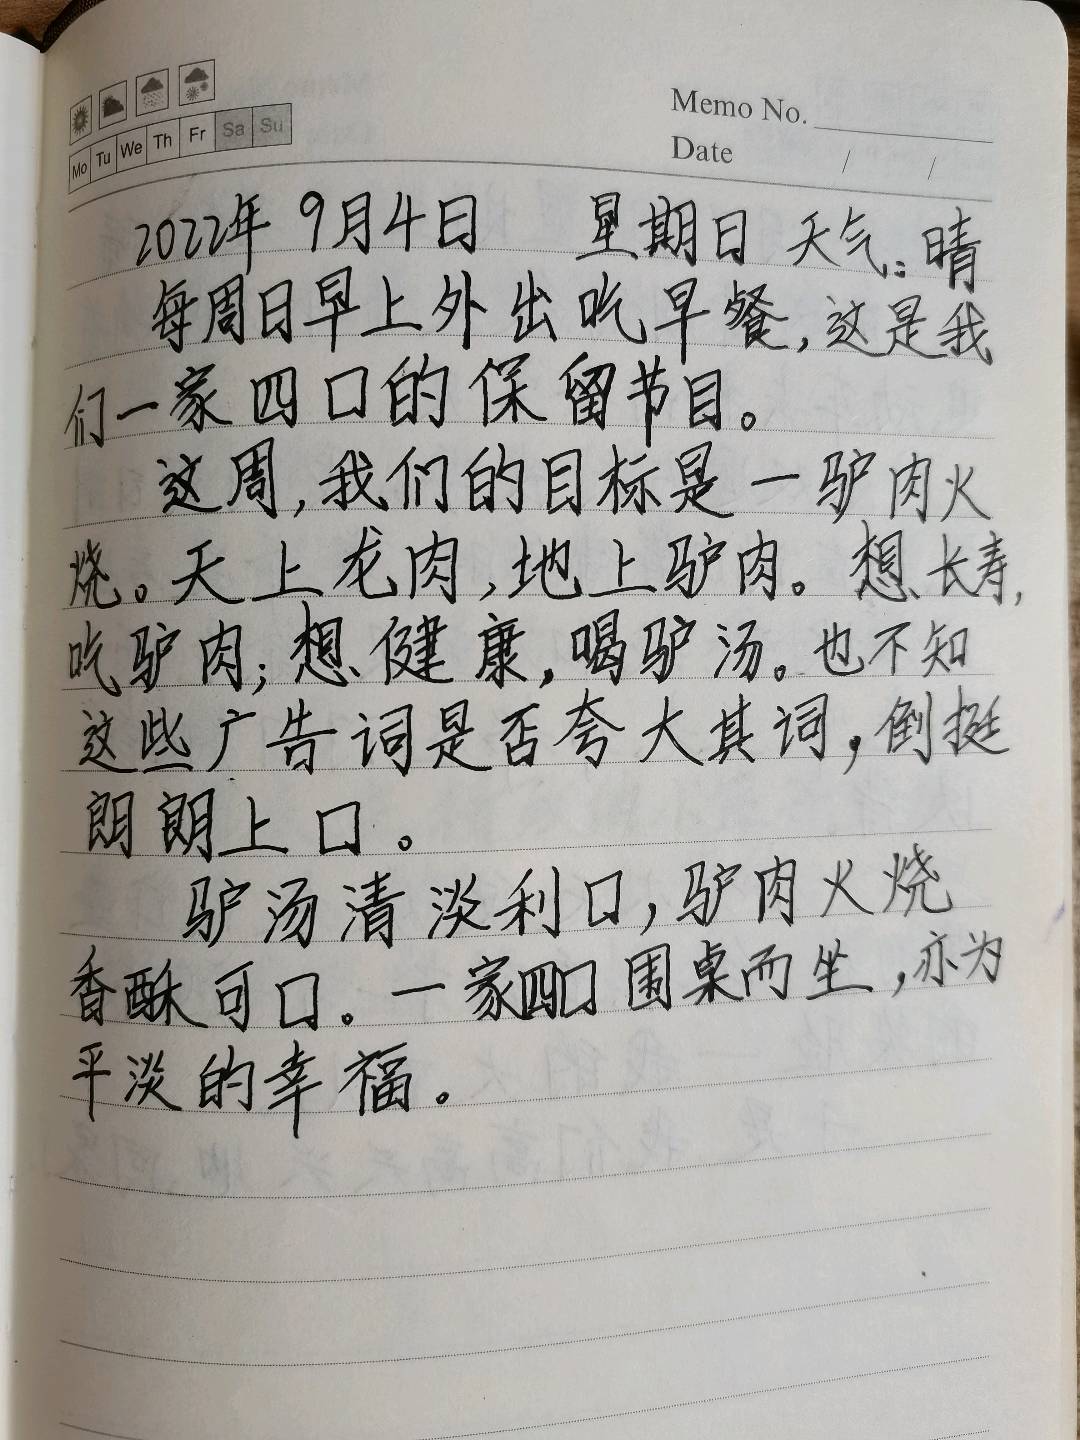 Memo No.
Mo Tu We Th Fr Sa Su
Date / /
2022年 9月4日 星期日 天气:晴
每周日早上外出吃早餐,这是我
们一家四口的保留节目。
这周,我们的目标是一驴肉火
烧。天上龙肉,地上驴肉。想长寿,
吃驴肉;想健康,喝驴汤。也不知
这些广告词是否夸大其词,倒挺
朗朗上口。
驴汤清淡利口,驴肉火烧
香酥可口。一家四口围桌而坐,亦为
平淡的幸福。